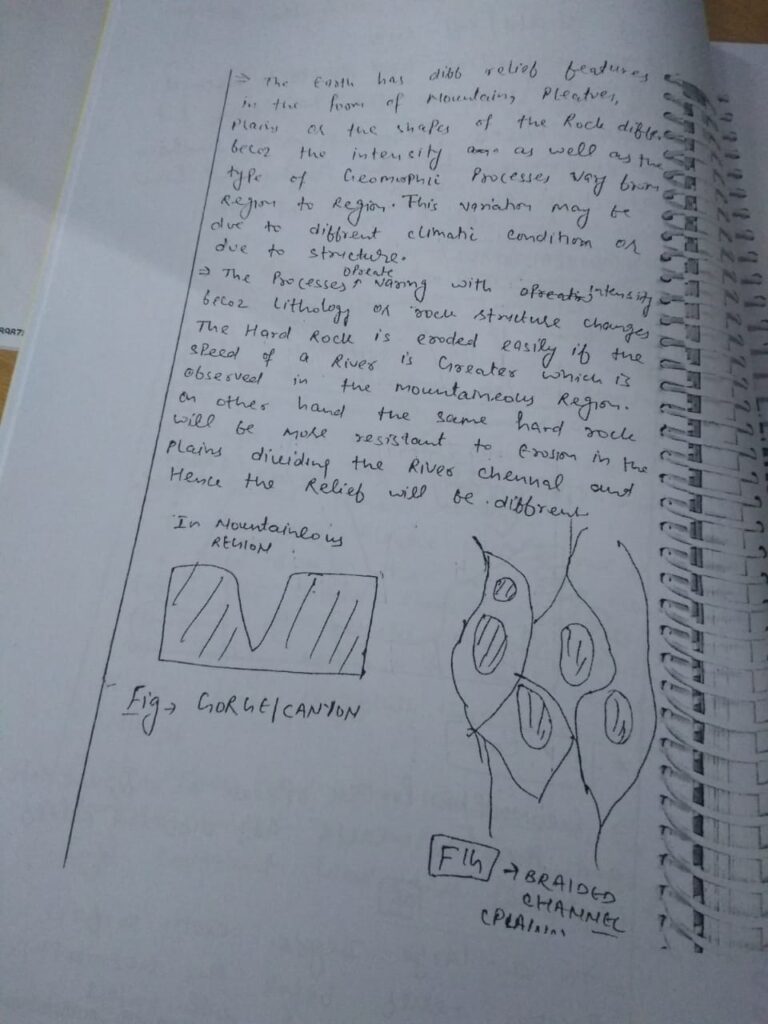 ⇒ The Earth has diff relief features
in the form of Mountains, Pleatues,
Plains or the shapes of the Rock differ
becoz the intensity as well as the
type of Geomorphic Processes vary from
Region to Region. This variation may be
due to diffrent climatic condition or
due to structure.
⇒ The Processes opreate varing with intensity
becoz Lithology or rock structure changes
The Hard Rock is eroded easily if the
speed of a River is Greater which is
observed in the mountaineous Region.
on other hand the same hard rock
will be more resistant to Erosion in the
Plains dividing the River chennal and
Hence the Relief will be different
In Mountaineous
REGION
Fig → GORGE/CANYON
FIG → BRAIDED
CHANNEL